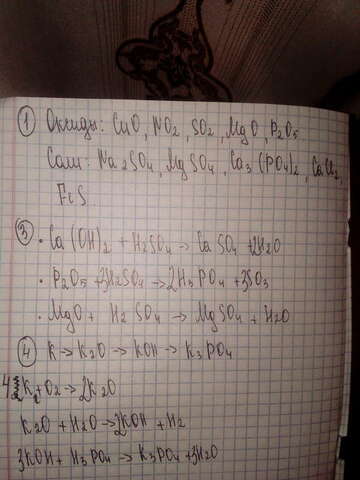 ① Оксиды: CuO, NO2, SO2, MgO, P2O5
Соли: Na2SO4, MgSO4, Ca3(PO4)2, CaCl2,
FeS
③ · Ca(OH)2 + H2SO4 → CaSO4 + 2H2O
· P2O5 + 3H2SO4 → 2H3PO4 + 3SO3
· MgO + H2SO4 → MgSO4 + H2O
④ K → K2O → KOH → K3PO4
4K + O2 → 2K2O
K2O + H2O → 2KOH + H2
3KOH + H3PO4 → K3PO4 + 3H2O